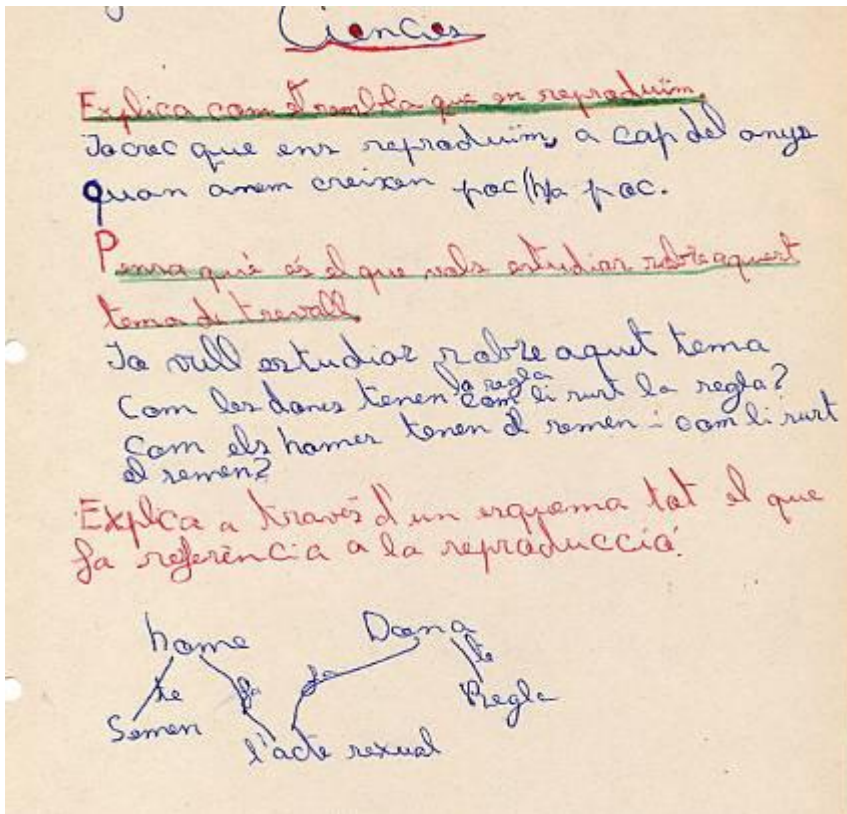 Ciències
Explica com et sembla que en reproduïm.
Jo crec que ens reproduïm, a cap del anys
quan anem creixen poc a poc.
Pensa què és el que vols estudiar sobre aquest
tema de trevall.
Jo vull estudiar sobre aquet tema
Com les dones tenen la regla com li surt la regla?
Com els homes tenen el semen i com li surt
el semen?
Explica a través d'un esquema tot el que
fa referència a la reproducció.
home Dona
te fa fa te
Semen Regla
l'acte sexual